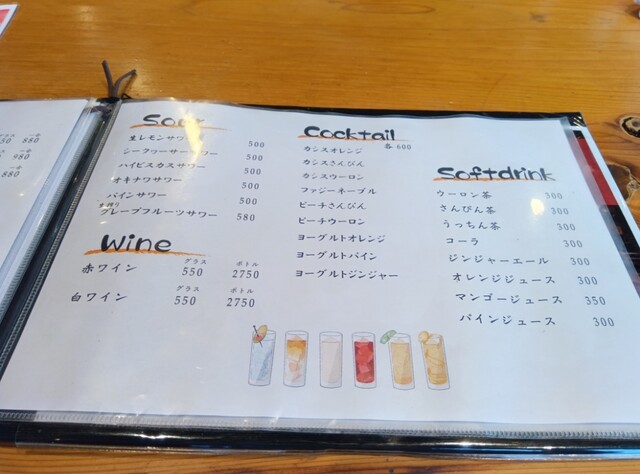 Sour
生レモンサワー 500
シークヮーサーサワー 500
ハイビスカスサワー 500
オキナワサワー 500
パインサワー 500
生搾り
グレープフルーツサワー 580
Wine
グラス ボトル
赤ワイン 550 2750
グラス ボトル
白ワイン 550 2750
Cocktail
各 600
カシスオレンジ
カシスさんぴん
カシスウーロン
ファジーネーブル
ピーチさんぴん
ピーチウーロン
ヨーグルトオレンジ
ヨーグルトパイン
ヨーグルトジンジャー
Softdrink
ウーロン茶 300
さんぴん茶 300
うっちん茶 300
コーラ 300
ジンジャーエール 300
オレンジジュース 300
マンゴージュース 350
パインジュース 300
980
880